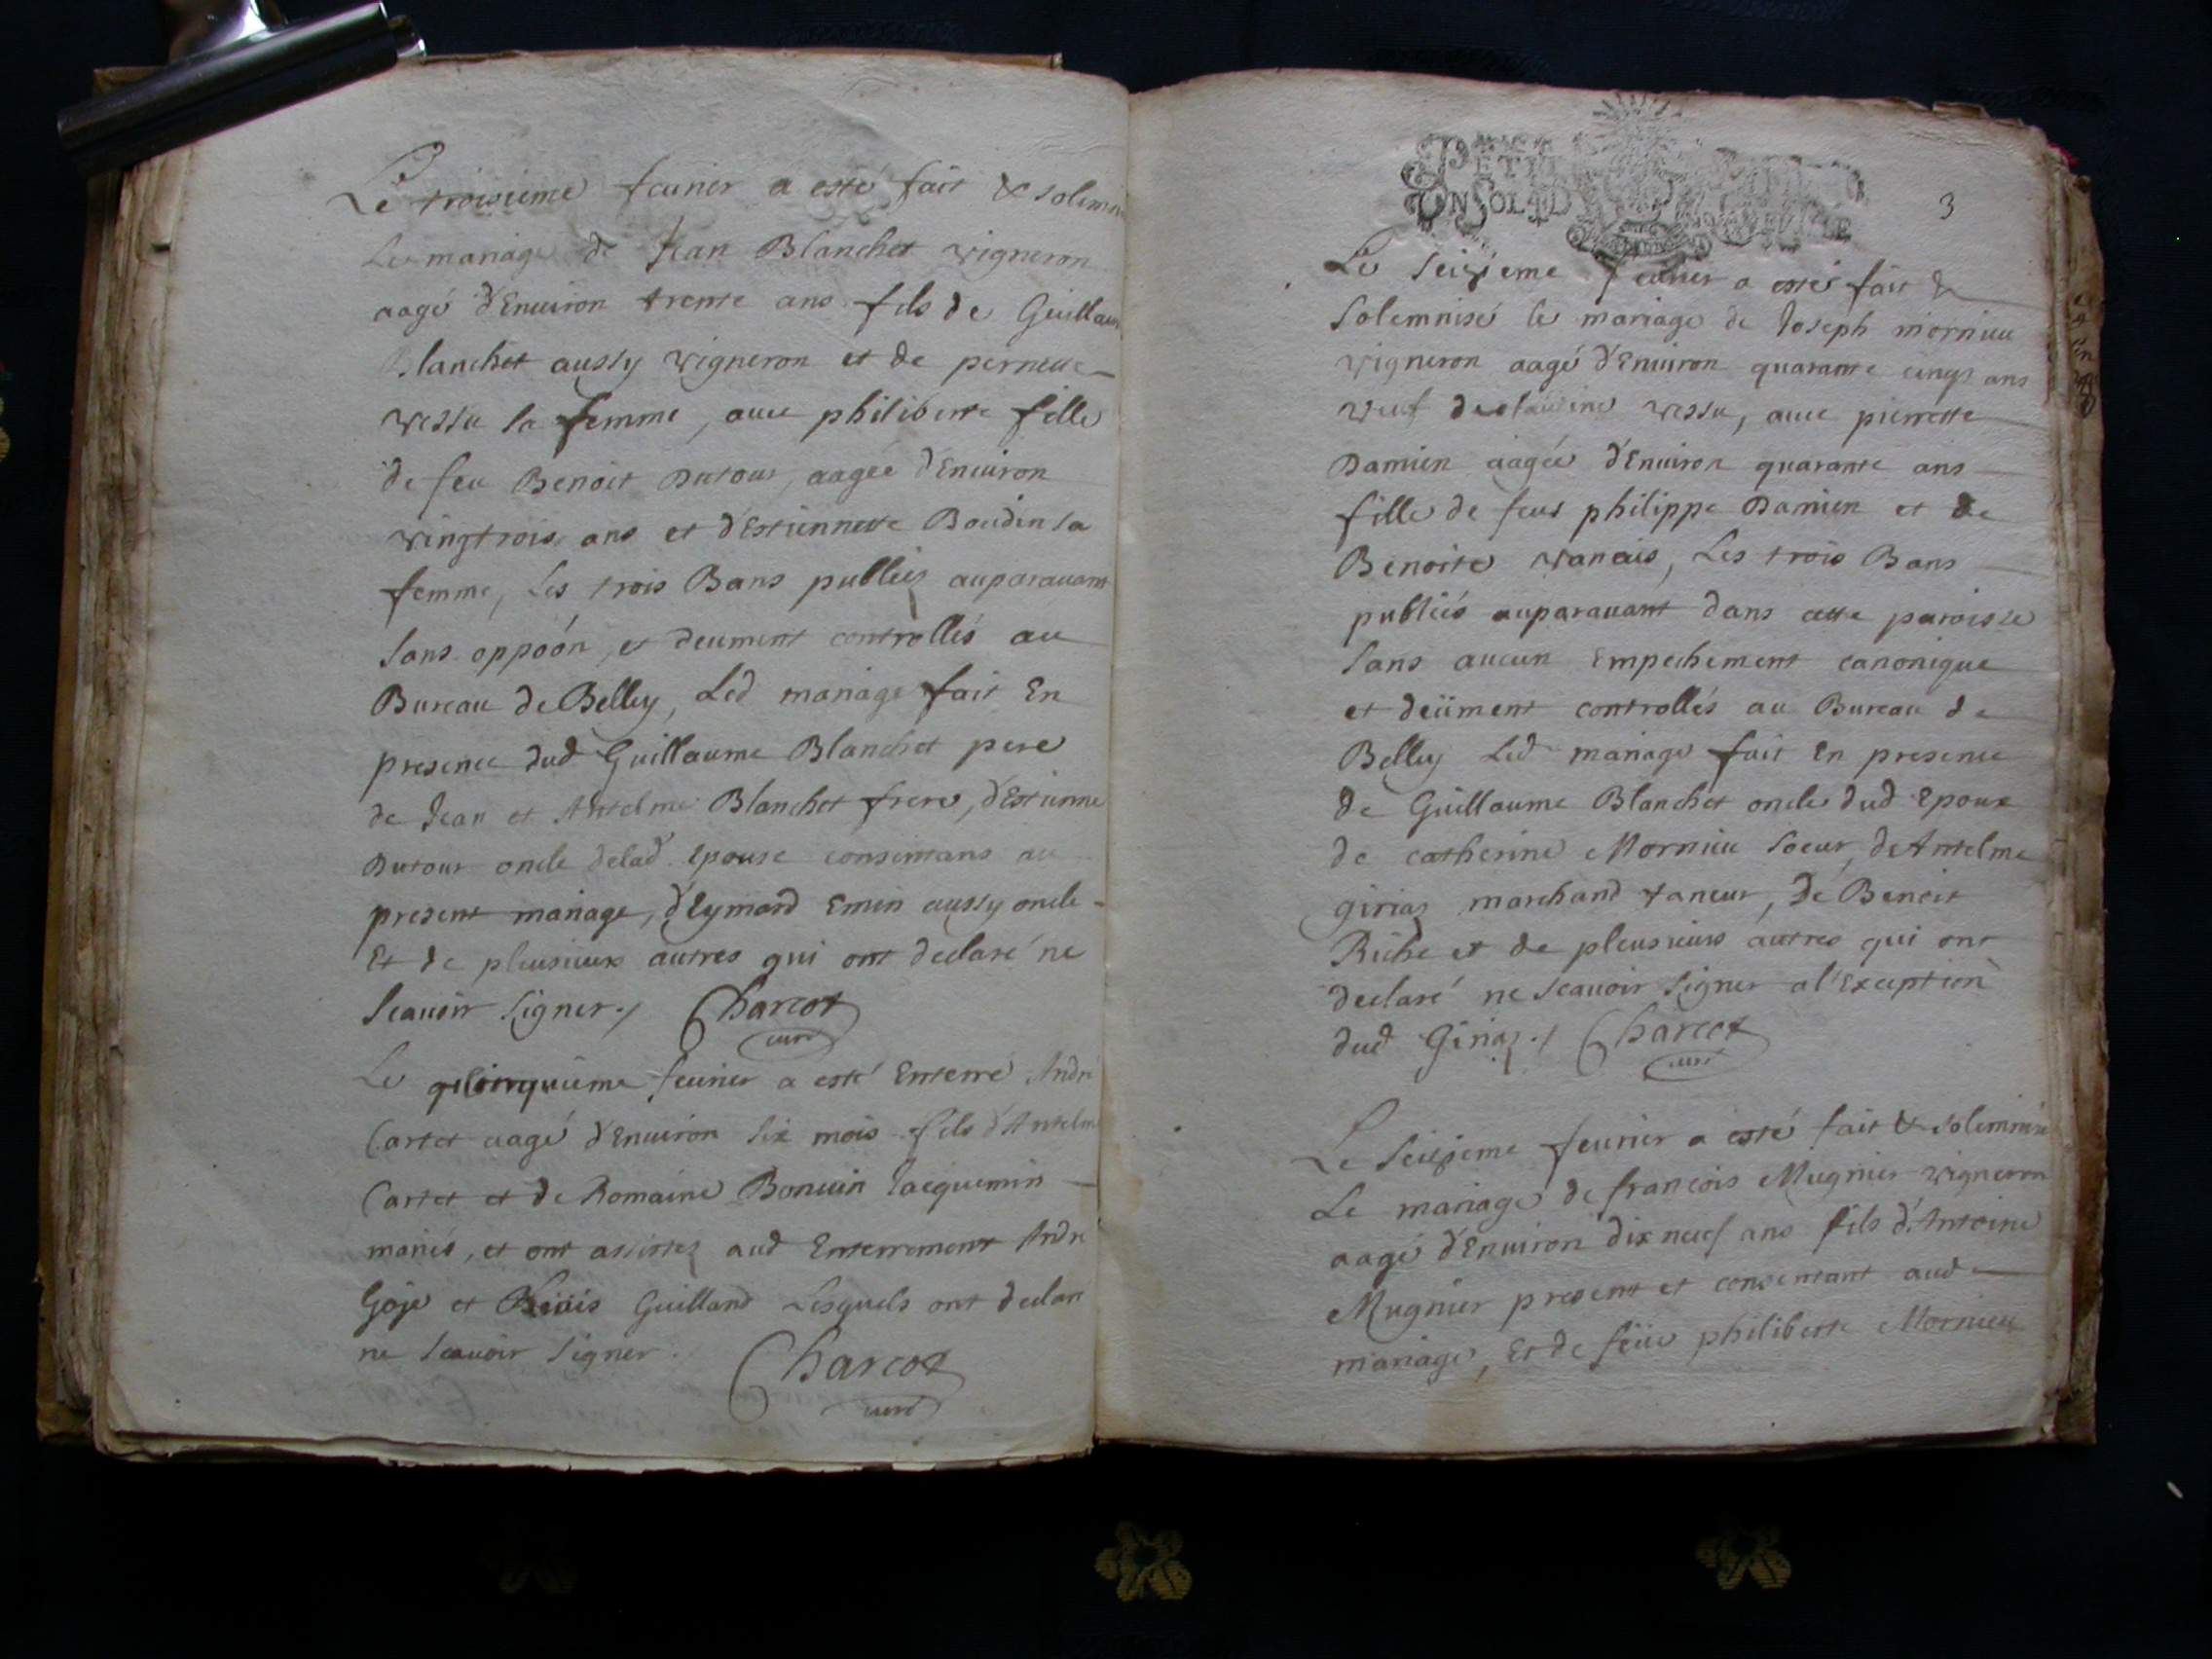 Le troisieme feurier a esté fait & solemn
Le mariage de Jean Blanchet vigneron
aagé d'Enuiron trente ans fils de Guillaum
Blanchet aussy vigneron et de pernette
vessu sa femme, auec philiberte fille
de feu Benoit Dutour, aagée d'Enuiron
vingtrois ans et d'Estiennette Boudin sa
femme, Les trois Bans publiez auparauant
sans oppoón, et deument controllés au
Bureau de Belley, Led mariage fait En
presence dud Guillaume Blanchet pere
de Jean et Antelme Blanchet frere, d'Estienne
Dutour oncle delad Epouse consentans au
present mariage, d'Eymard Emin aussy oncle
Et de plusieurs autres qui ont declaré ne
scauoir signer./ Charcot
curé
Le cinquieme feurier a esté Enterré André
Cartet aagé d'Enuiron six mois fils d'Antelm
Cartet et de Romaine Bonuin Jacquemin
mariés, et ont assistez aud Enterrement Andre
Goje et Guilland Lesquels ont declaré
ne scauoir signer.
Charcot
curé
PETIT
EN SOL
3
Le seizieme feurier a esté fait &
solemnisé le mariage de Joseph mornieu
vigneron aagé d'Enuiron quarante cinqs ans
veuf de vessu, auec pierrette
Damien aagée d'Enuiron quarante ans
fille de feus philippe Damien et de
Benoite vanais, Les trois Bans
publiés auparauant dans cette paroisse
sans aucun Empechement canonique
et deüment controllés au Bureau de
Belley Led mariage fait En presence
de Guillaume Blanchet oncle dud Epoux
de catherine Mornieu soeur, de Antelme
giriaz marchand taneur, de Benoit
Riche et de pleusieurs autres qui ont
declaré ne scauoir signer a l'Exception
dud Giriaz./ Charcot
curé
Le seizieme feurier a esté fait & solemnisé
Le mariage de francois Mugnier vigneron
aagé d'Enuiron dix neuf ans fils d'Antoine
Mugnier present et consentant aud
mariage, Et de feüe philiberte Mornieu